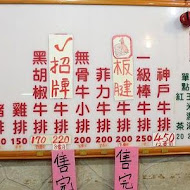 單點
神戶牛排
450
一級棒牛排
250
板腱牛排
200
菲力牛排
200
無骨牛小排
200
招牌牛排
220
黑胡椒牛排
170
雞排
豬排
售完
售完